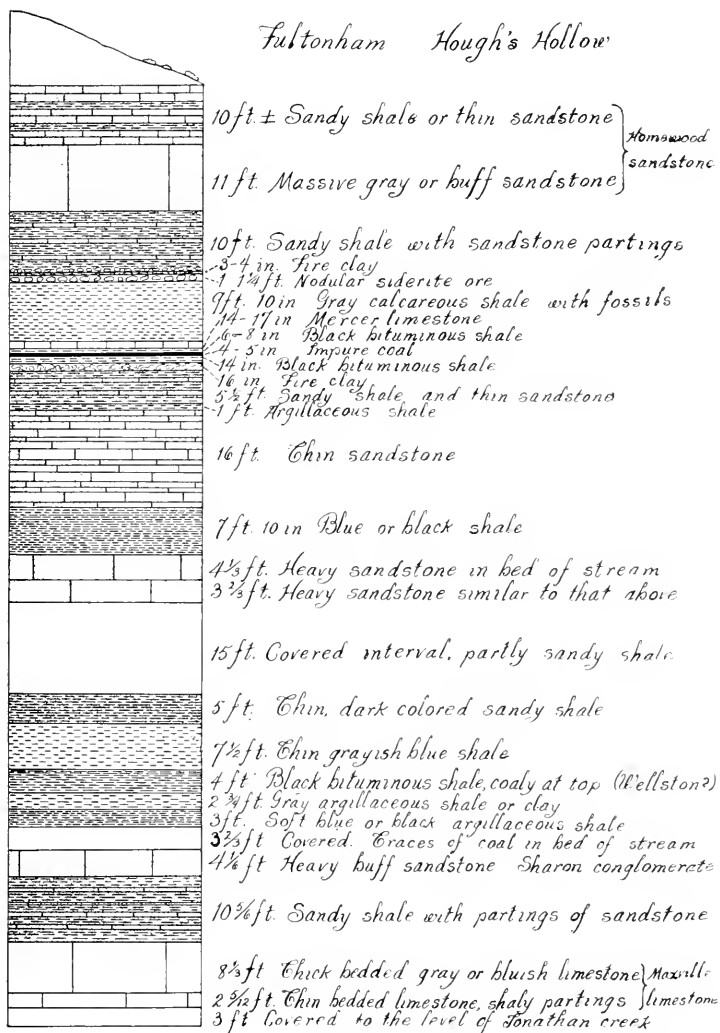 Fultonham Hough's Hollow
10 ft. ± Sandy shale or thin sandstone
Homewood
sandstone
11 ft. Massive gray or buff sandstone
10 ft. Sandy shale with sandstone partings
3-4 in. Fire clay
1 1¼ ft. Nodular siderite ore
9 ft. 10 in Gray calcareous shale with fossils
14-17 in Mercer limestone
6-8 in Black bituminous shale
4-5 in Impure coal
14 in. Black bituminous shale
16 in. Fire clay
5½ ft. Sandy shale, and thin sandstone
1 ft. Argillaceous shale
16 ft. Thin sandstone
7 ft. 10 in Blue or black shale
4⅓ ft. Heavy sandstone in bed of stream
3⅔ ft. Heavy sandstone similar to that above
15 ft. Covered interval, partly sandy shale
5 ft. Thin, dark colored sandy shale
7½ ft. Thin grayish blue shale
4 ft Black bituminous shale, coaly at top (Wellston?)
2¾ ft. Gray argillaceous shale or clay
3 ft. Soft blue or black argillaceous shale
3⅔ ft Covered. Traces of coal in bed of stream
4⅙ ft Heavy buff sandstone Sharon conglomerate
10⅚ ft. Sandy shale with partings of sandstone
8⅓ ft Thick bedded gray or bluish limestone
Maxville
limestone
2 5/12 ft. Thin bedded limestone, shaly partings
3 ft Covered to the level of Jonathan creek